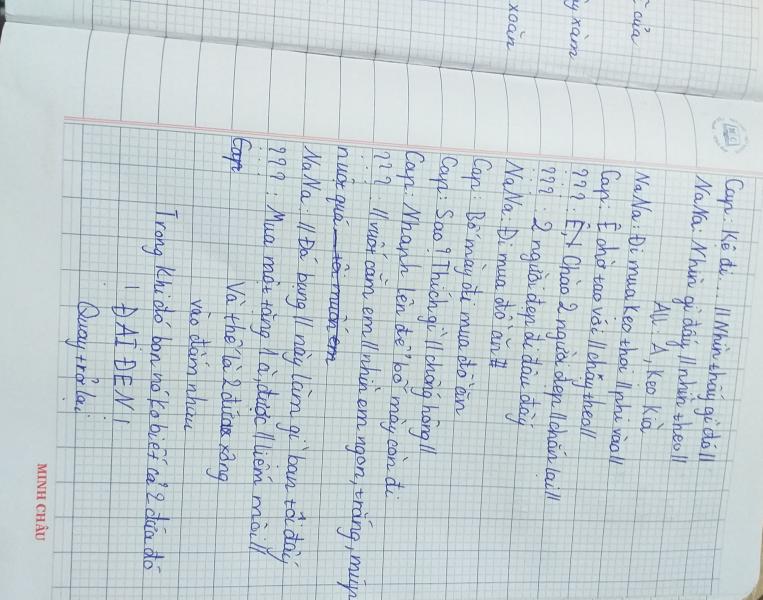 của
ý xám
xoăn
Cap: Kệ đi... //Nhìn thấy gì đó//
NaNa: Nhìn gì đấy //nhìn theo//
All: A, Kẹo kìa
NaNa: Đi mua kẹo thôi //phi vào//
Cap: Ê chờ tao với //chạy theo//
???: Ê, Chào 2 người đẹp //chặn lại//
???: 2 người đẹp đi đâu đấy
NaNa: Đi mua đồ ăn
Cap: Bố mày đi mua đồ ăn
Cap: Sao? Thích gì //chống hông//
Cap: Nhanh lên để bố mày còn đi
???: //vuốt cằm em// nhìn em ngon, trắng, múp
nuột quá
NaNa: //Đá bụng// này làm gì bạn tôi đấy
???: Mua một tặng 1 à, được //liếm môi//
Cap
Và thế là 2 đứa xông
vào đấm nhau
Trong khi đó bọn nó ko biết cả 2 đứa đó
! ĐAI ĐEN !
Quay trở lại
MINH CHÂU